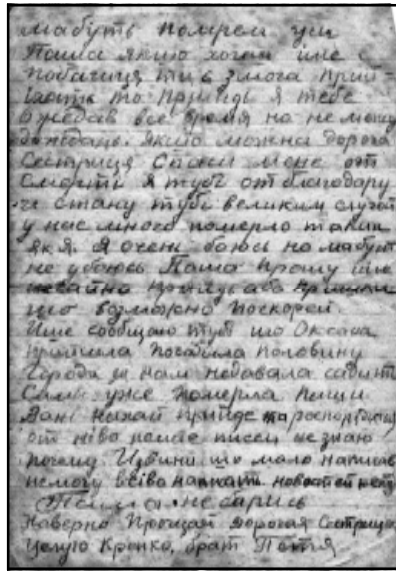 мабуть помрем уси
Паша якшо хочаш іше
побачиця ти в змога прий-
іхать то приїдь я тебе
ожедав все время но не можу
дожедаць. якшо можна дорога
Сестриця спаси мене от
Смерти я тубі отблагодару
чі стану тубі великим слугой
у нас много померло таких
як я. Я очень боюсь но мабуть
не убоюсь Паша прошу
приїдь або
шо возможно поскорей.
Ише сообщаю тубі шо Оксана
прийшла половину
города и нам недавала
Сама уже померла пиши
Вані нехай приїде
от ніво писем не знаю
почему Извини шо мало написав
немогу всіво написать новостей нету
Паша не сарись
Наверно Прощай Дорогая Сестрица
Целую Крепко, брат Петя